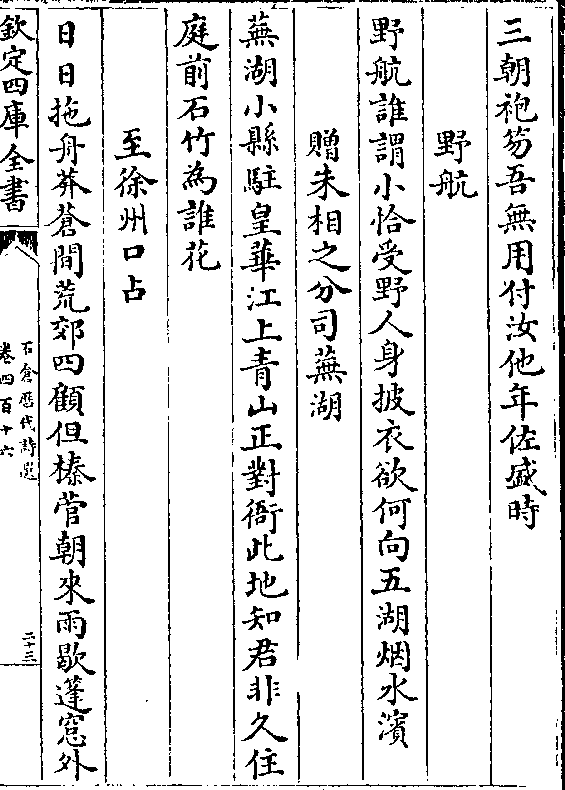 三朝袍笏吾無用付汝他年佐盛時
野航
野航誰謂小恰受野人身披衣欲何向五湖烟水濱
贈朱相之分司蕪湖
蕪湖小縣駐皇華江上青山正對衙此地知君非久住
庭前石竹為誰花
至徐州口占
日日拖舟莽蒼間荒郊四顧但榛菅朝來雨歇蓬窓外
欽定四庫全書
石倉歷代詩選
卷四百十六
二十三